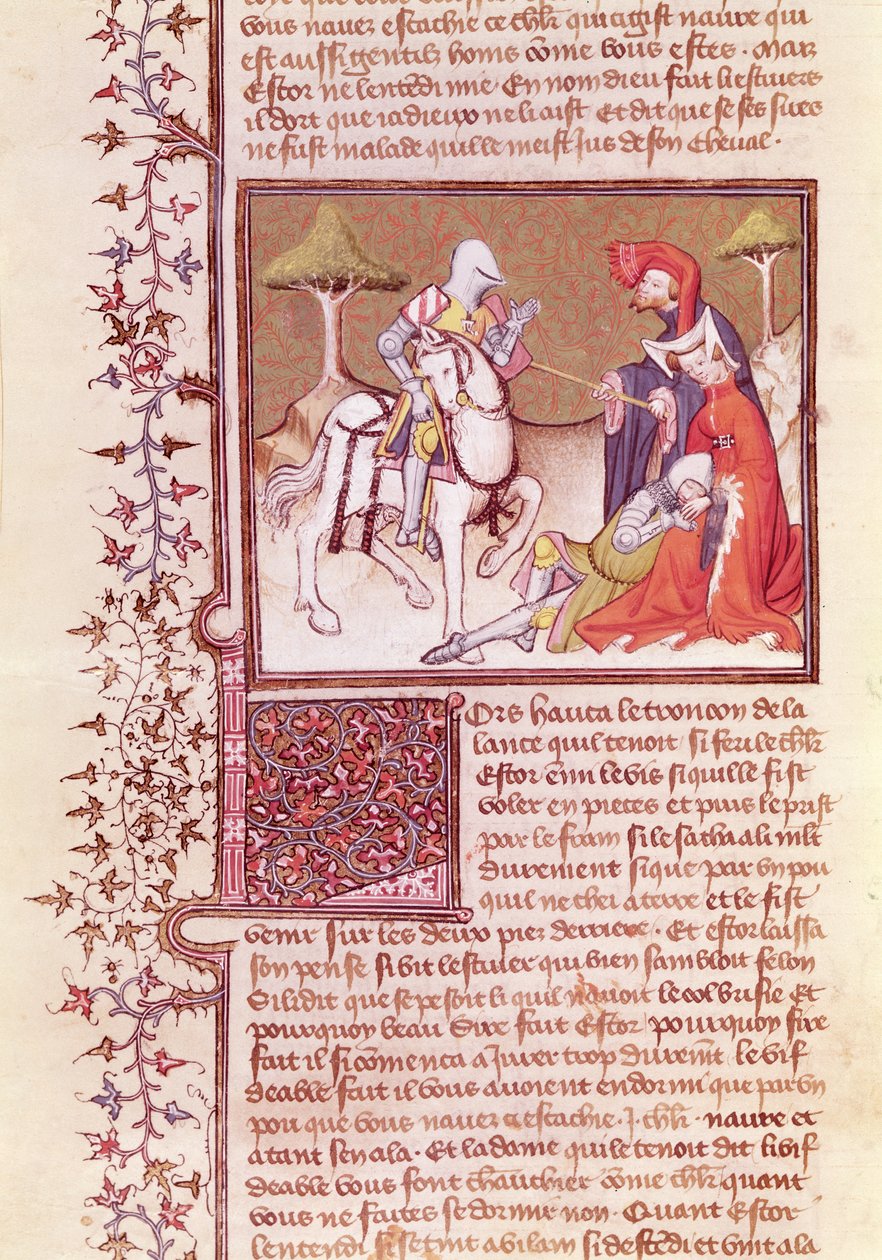 vous nauez escachie ce chlr qui ci gist naure qui
est aussi gentilz homs cõme vous estes . Maiz
Estor ne lentẽdi mie . En nom dieu fait li escuiers
il dort que ia dieux ne li aist Et dit que se ses sires
ne fust malade quil le meist jus de son cheual .
Lors hauca le troncon de la
lance quil tenoit / si feri le chlr
Estor ẽmi le vis si quil le fist
voler en pieces et puis le prist
par le frain si le sacha a li mlt
durement si que par vn pou
quil ne chei a terre et le fist
venir sur les deux piez derriere . Et estor laissa
son pense si vit lescuier qui bien sambloit felon
Si li dit que se pe soit li quil nauoit le col brisie Et
pourquoy beau Sire fait Estor / pourquoy sire
fait il si cõmenca a jurer trop duremt le vif
deable fait il vous auoient endormi que par vn
pou que vous nauez escachie . j . chlr . naure et
atant sen ala . Et la dame qui le tenoit dit li vif
deable vous font cheuauchier cõme chlr quant
vous ne faites se dormir non . Quant Estor
lentendi si se tint a vilain si descẽdi et vint a la